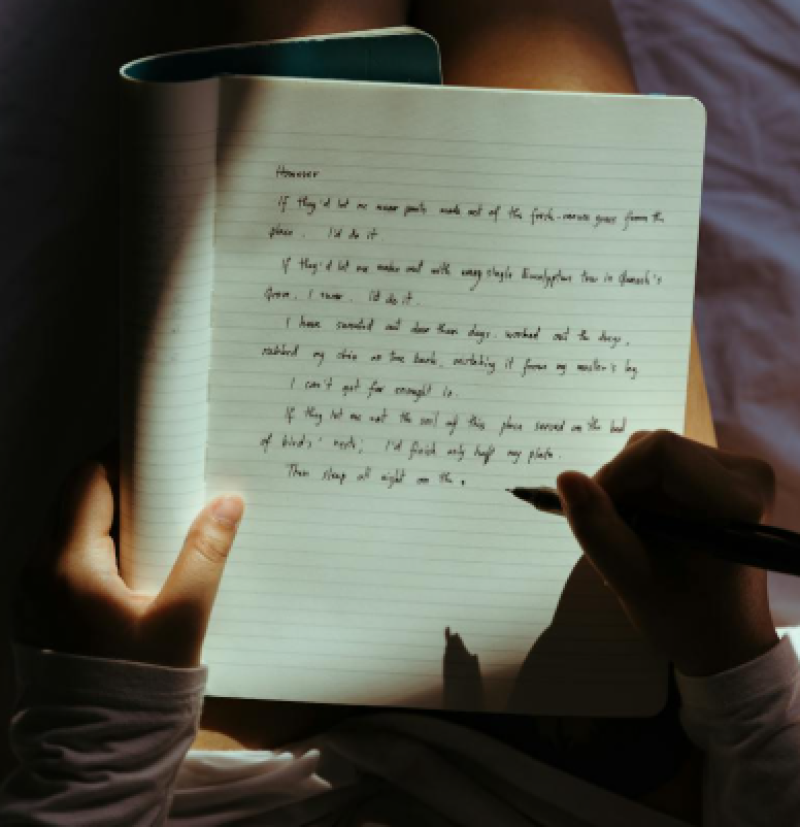 However
If they'd let me wear pants made out of the fresh-mown grass from the
place. I'd do it.
If they'd let me make out with every single Eucalyptus tree in Queen's
Grove, I swear. I'd do it.
I have sweated out dew these days, worked out the dregs,
rubbed my chin on the bark, mistaking it from my master's leg
I can't get far enough in.
If they let me eat the soil of this place served on the bed
of birds' nests; I'd finish only half my plate.
Then sleep all night on the